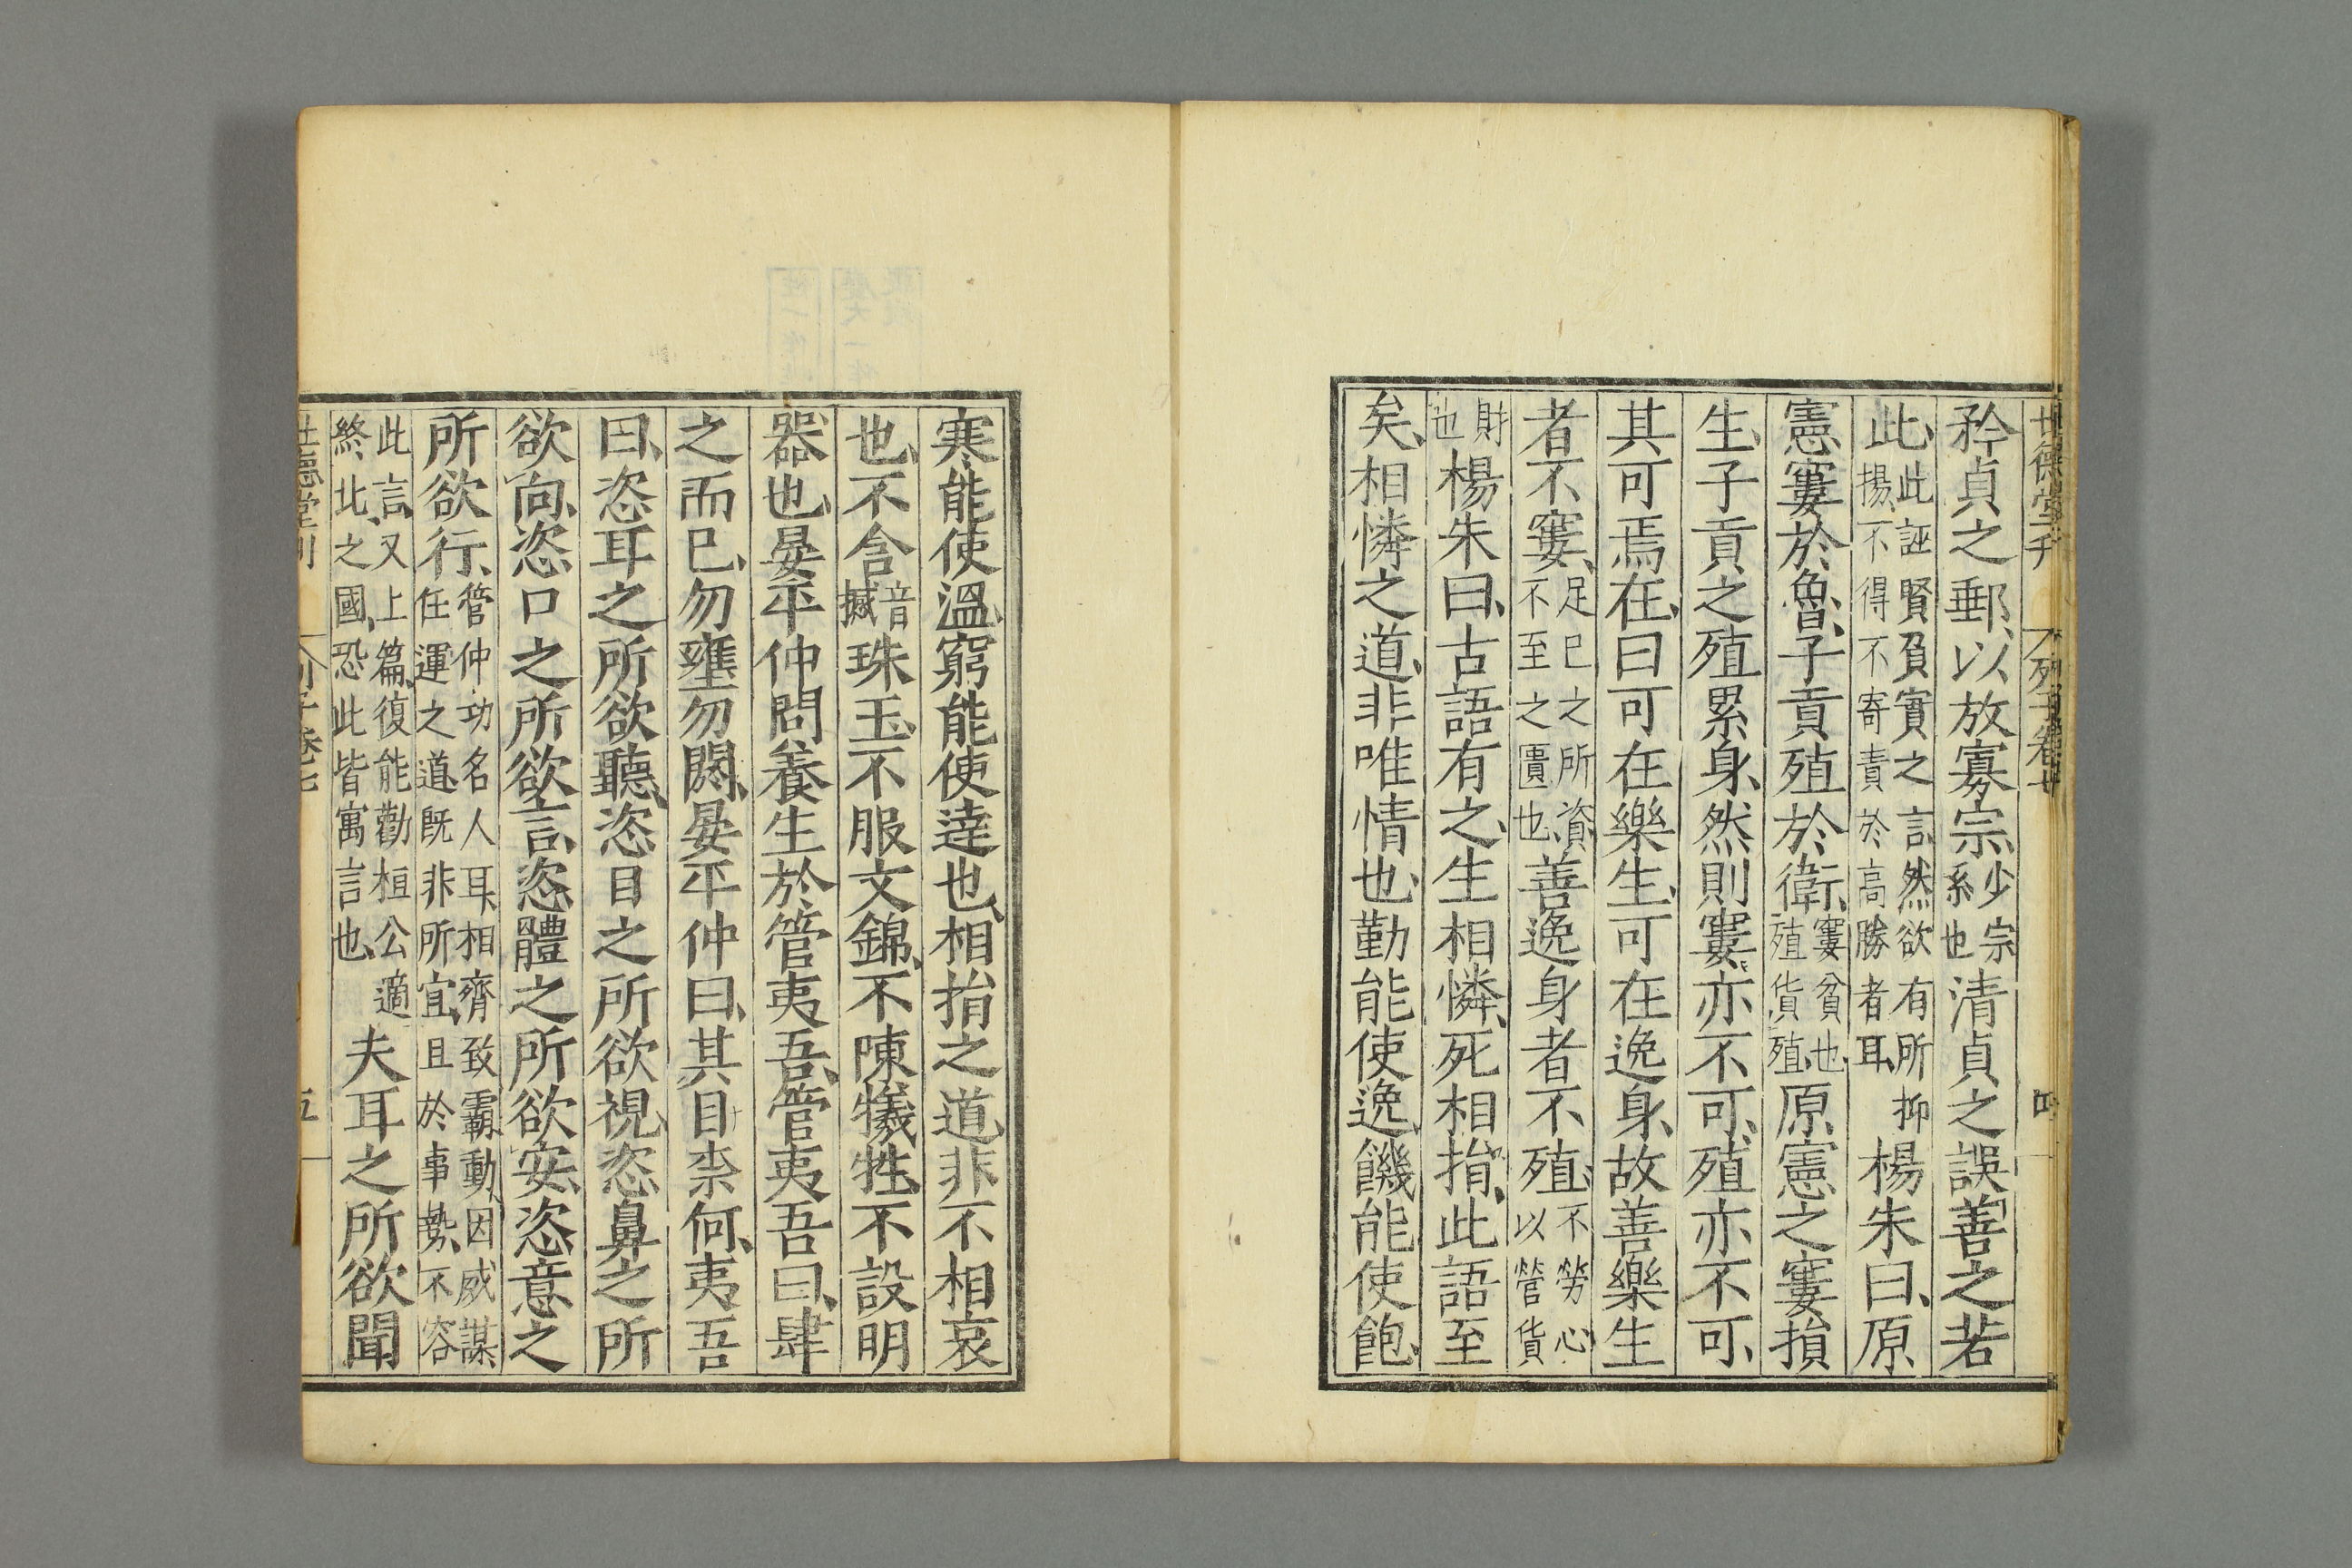 世德堂刊 列子卷七 四
矜貞之郵以放寡宗少宗系也清貞之誤善之若
此此誣賢負實之言然欲有所抑揚不得不寄責於高勝者耳楊朱曰原
憲窶於魯子貢殖於衛窶貧也殖貨殖原憲之窶損
生子貢之殖累身然則窶亦不可殖亦不可
其可焉在曰可在樂生可在逸身故善樂生
者不窶足已之所資不至之匱也善逸身者不殖不勞心以營貨
財也楊朱曰古語有之生相憐死相捐此語至
矣相憐之道非唯情也勤能使逸饑能使飽
寒能使溫窮能使達也相捐之道非不相哀
也不含音撼珠玉不服文錦不陳犧牲不設明
器也晏平仲問養生於管夷吾管夷吾曰肆
之而已勿壅勿閼晏平仲曰其目柰何夷吾
曰恣耳之所欲聽恣目之所欲視恣鼻之所
欲向恣口之所欲言恣體之所欲安恣意之
所欲行管仲功名人耳相齊致霸動因威謀任運之道既非所宜且於事勢不容
此言又上篇復能勸桓公適終北之國恐此皆寓言也夫耳之所欲聞
世德堂刊 列子卷七 五